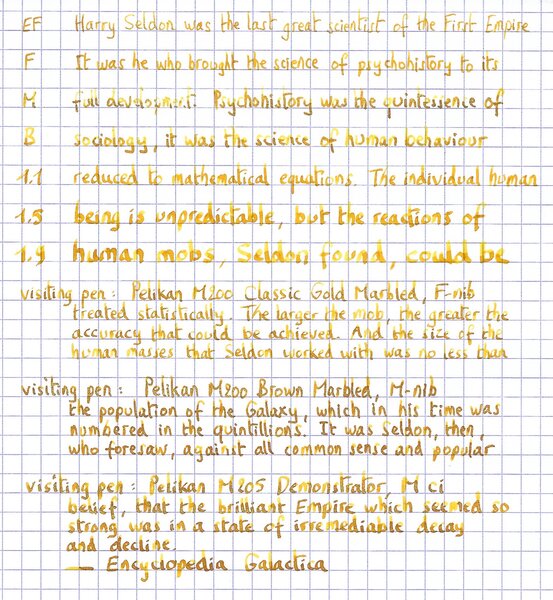 EF Harry Seldon was the last great scientist of the First Empire
F It was he who brought the science of psychohistory to its
M full development. Psychohistory was the quintessence of
B sociology, it was the science of human behaviour
1.1 reduced to mathematical equations. The individual human
1.5 being is unpredictable, but the reactions of
1.9 human mobs, Seldon found, could be
visiting pen: Pelikan M200 Classic Gold Marbled, F-nib
treated statistically. The larger the mob, the greater the
accuracy that could be achieved. And the size of the
human masses that Seldon worked with was no less than
visiting pen: Pelikan M200 Brown Marbled, M-nib
the population of the Galaxy, which in his time was
numbered in the quintillions. It was Seldon, then,
who foresaw, against all common sense and popular
visiting pen: Pelikan M205 Demonstrator, M ci
belief, that the brilliant Empire which seemed so
strong was in a state of irremediable decay
and decline.
— Encyclopedia Galactica